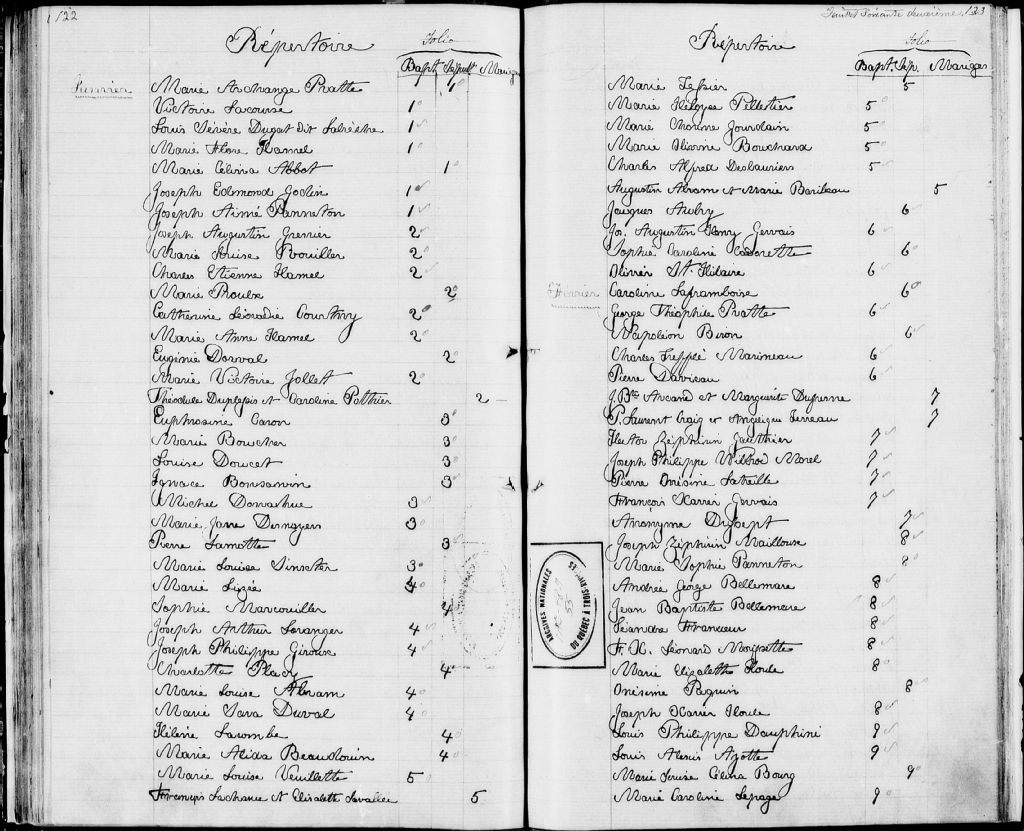 122
Répertoire
Folio
Bapt. Sépult. Mariages
Janvier Marie Archange Pratte 1
Victoire Lacourse 1
Louis Sévère Dugat dit Labrèche 1
Marie Flore Hamel 1
Marie Célina Abbot 1
Joseph Edmond Godin 1
Joseph Aimé Panneton 1
Joseph Augustin Grenier 2
Marie Louise Rouiller 2
Charles Etienne Hamel 2
Marie Proulx 2
Catherine Léocadie Courtney 2
Marie Anne Hamel 2
Euginie Dorval 2
Marie Victoire Jollett 2
Théodule Duplepis et Caroline Pothier 2
Euphrosine Caron 3
Marie Boucher 3
Louise Doucet 3
Ignace Bonsawin 3
Michel Donahue 3
Marie Jane Desnoyers 3
Pierre Lamotte 3
Marie Louise 3
Marie Lizée 4
Sophie Marcouiller 4
Joseph Arthur Loranger 4
Joseph Philippe Giroux 4
Charlotte Placy 4
Marie Louise Abram 4
Marie Sara Duval 4
Hélène Larombe 4
Marie Alida Beaudouin 4
Marie Louise Veuillette 5
François Lachance et Elisabeth Lavallée 5
Feuillet Soixante deuxième. 123
Répertoire
Folio
Bapt. Sép. Mariges
Marie Tessier 5
Marie Pelletier 5
Marie Jourdain 5
Marie Bouchard 5
Charles Alfred Deslauriers 5
Augustin Abram et Marie Barileau 5
Jacques Aubry 6
Jos. Augustin Henry Gervais 6
Sophie Caroline Cadorette 6
Olivier St. Hilaire 6
Février Caroline Laframboise 6
George Théophile Pratte 6
Napoléon Biron 6
Charles Zepplé Marineau 6
Pierre Daviau 6
J. Bte Arcand et Marguerite Dufresne 7
P. Laurent Craig et Angélique Terreau 7
Hector Zéphirin Gauthier 7
Joseph Philippe Wilbrod Morel 7
Pierre Onésime Latreille 7
François Xavier Gervais 7
Anonyme 7
Joseph Zéphirin Mailloux 8
Marie Sophie Panneton 8
André George Bellemare 8
Jean Baptiste Bellemare 8
Léandre Francœur 8
F. X. Léonard Moysette 8
Marie Elizabeth Houle 8
Onésime Paquin 8
Joseph Xavier Houle 8
Louis Philippe Dauphiné 9
Louis Alexis Ayotte 9
Marie Louise Célina Bourg 9
Marie Caroline Lepage 9
ARCHIVES NATIONALES
DU QUÉBEC À TROIS-RIVIÈRES